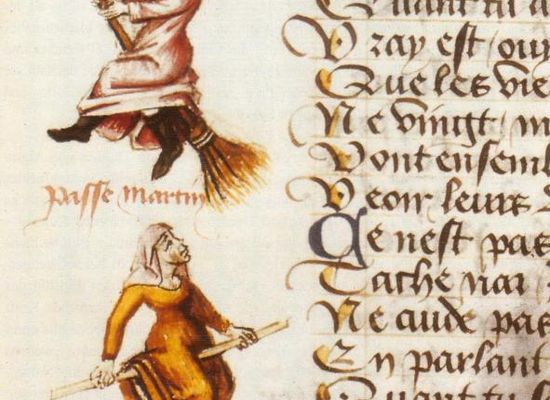 passe martin
Quant tu a
Vray est ouy
Que les vie
Ne vingt m
Vont ensemb
Veoir leurs
Ce nest pas
Ne cuide pas
En parlant
Quant tu